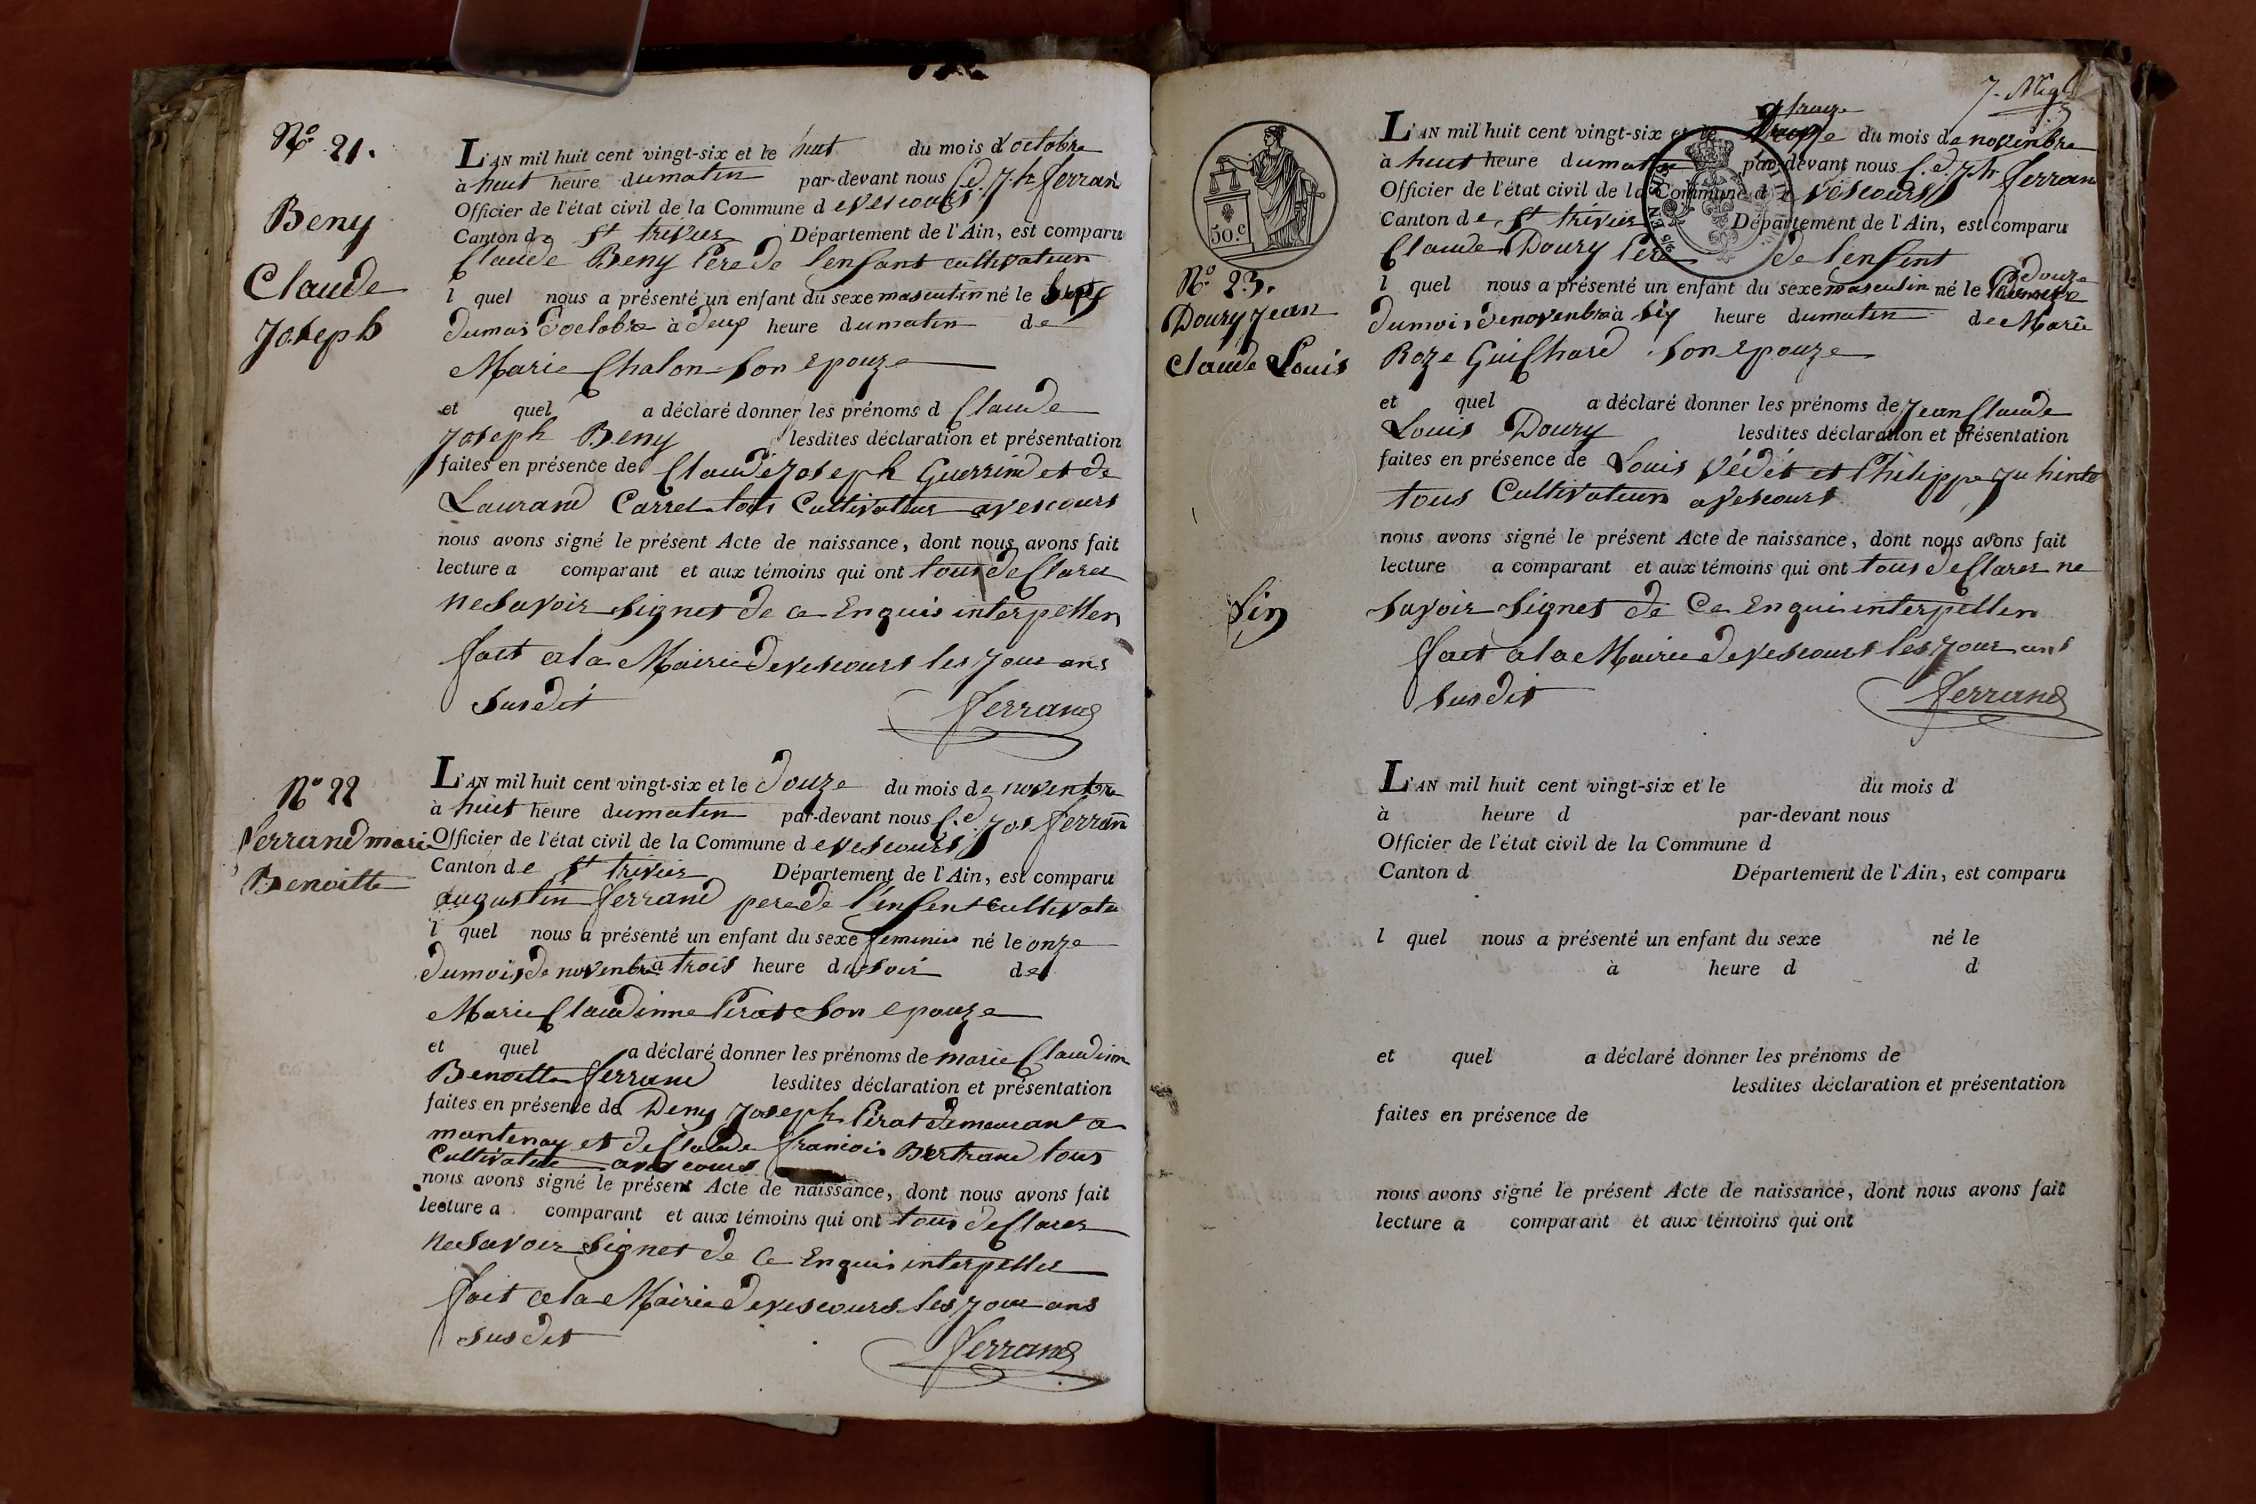 N.º 21.
Beny
Claude
Joseph
L'AN mil huit cent vingt-six et le huit du mois d'octobre
à huit heure dumatin par-devant nous C.d. Jh ferran
Officier de l'état civil de la Commune d evescours
Canton de St trivier Département de l'Ain, est comparu
Claude Beny Pere de l'enfant cultivateur
l quel nous a présenté un enfant du sexe masculin né le Sept
dumois d'octobre à deux heure dumatin de
Marie Chalon Son epouze
et quel a déclaré donner les prénoms d Claude
Joseph Beny lesdites déclaration et présentation
faites en présence de Claude Joseph Guerrin et de
Laurand Carrel tous Cultivateur avescours
nous avons signé le présent Acte de naissance, dont nous avons fait
lecture a comparant et aux témoins qui ont tous declarer
ne Savoir Signer de ce Enquis interpeller
fait ala Mairie devescours les jour ans
Susdit
Ferrand
Nº 22
Ferrand marie
Benoitte
L'AN mil huit cent vingt-six et le douze du mois de novembre
à huit heure dumatin par-devant nous C.d Jos ferran
Officier de l'état civil de la Commune d evescours
Canton de St trivier Département de l'Ain, est comparu
augustin ferrand pere de l'enfent Cultivateu
l quel nous a présenté un enfant du sexe feminin né le onze
dumois de novembre a trois heure du soir de
Marie Claudinne Perat Son epouze
et quel a déclaré donner les prénoms de marie Claudinne
Benoitte ferrand lesdites déclaration et présentation
faites en présence de Deny Joseph Perat demeurant a
mantenay et de Claude francois Bertrand tous
Cultivateur avescours
nous avons signé le présent Acte de naissance, dont nous avons fait
lecture a comparant et aux témoins qui ont tous declarer
ne Savoir Signer de Ce Enquis interpeller
fait ala Mairie devescours les jour ans
Susdit
Ferrand
50.c
N.º 23.
Doury Jean
Claude Louis
Fin
L'AN mil huit cent vingt-six et le treize du mois de novembre
à huit heure dumatin par-devant nous C.d. Jh ferran
Officier de l'état civil de la Commune d e vescours
Canton de St trivier Département de l'Ain, est comparu
Claude Doury Pere de l'enfent
l quel nous a présenté un enfant du sexe masculin né le douze
dumois denovembre à six heure dumatin de Marie
Roze Guichard Son epouze
et quel a déclaré donner les prénoms de Jean Claude
Louis Doury lesdites déclaration et présentation
faites en présence de Louis Védét et Philippe
tous Cultivateurs avescours
nous avons signé le présent Acte de naissance, dont nous avons fait
lecture a comparant et aux témoins qui ont tous declarer ne
Savoir Signer de Ce Enqui interpeller
fait ala Mairie devescours les jour ans
Susdit
Ferrand
L'AN mil huit cent vingt-six et le du mois d
à heure d par-devant nous
Officier de l'état civil de la Commune d
Canton d Département de l'Ain, est comparu
l quel nous a présenté un enfant du sexe né le
à heure d d
et quel a déclaré donner les prénoms de
lesdites déclaration et présentation
faites en présence de
nous avons signé le présent Acte de naissance, dont nous avons fait
lecture a comparant et aux témoins qui ont